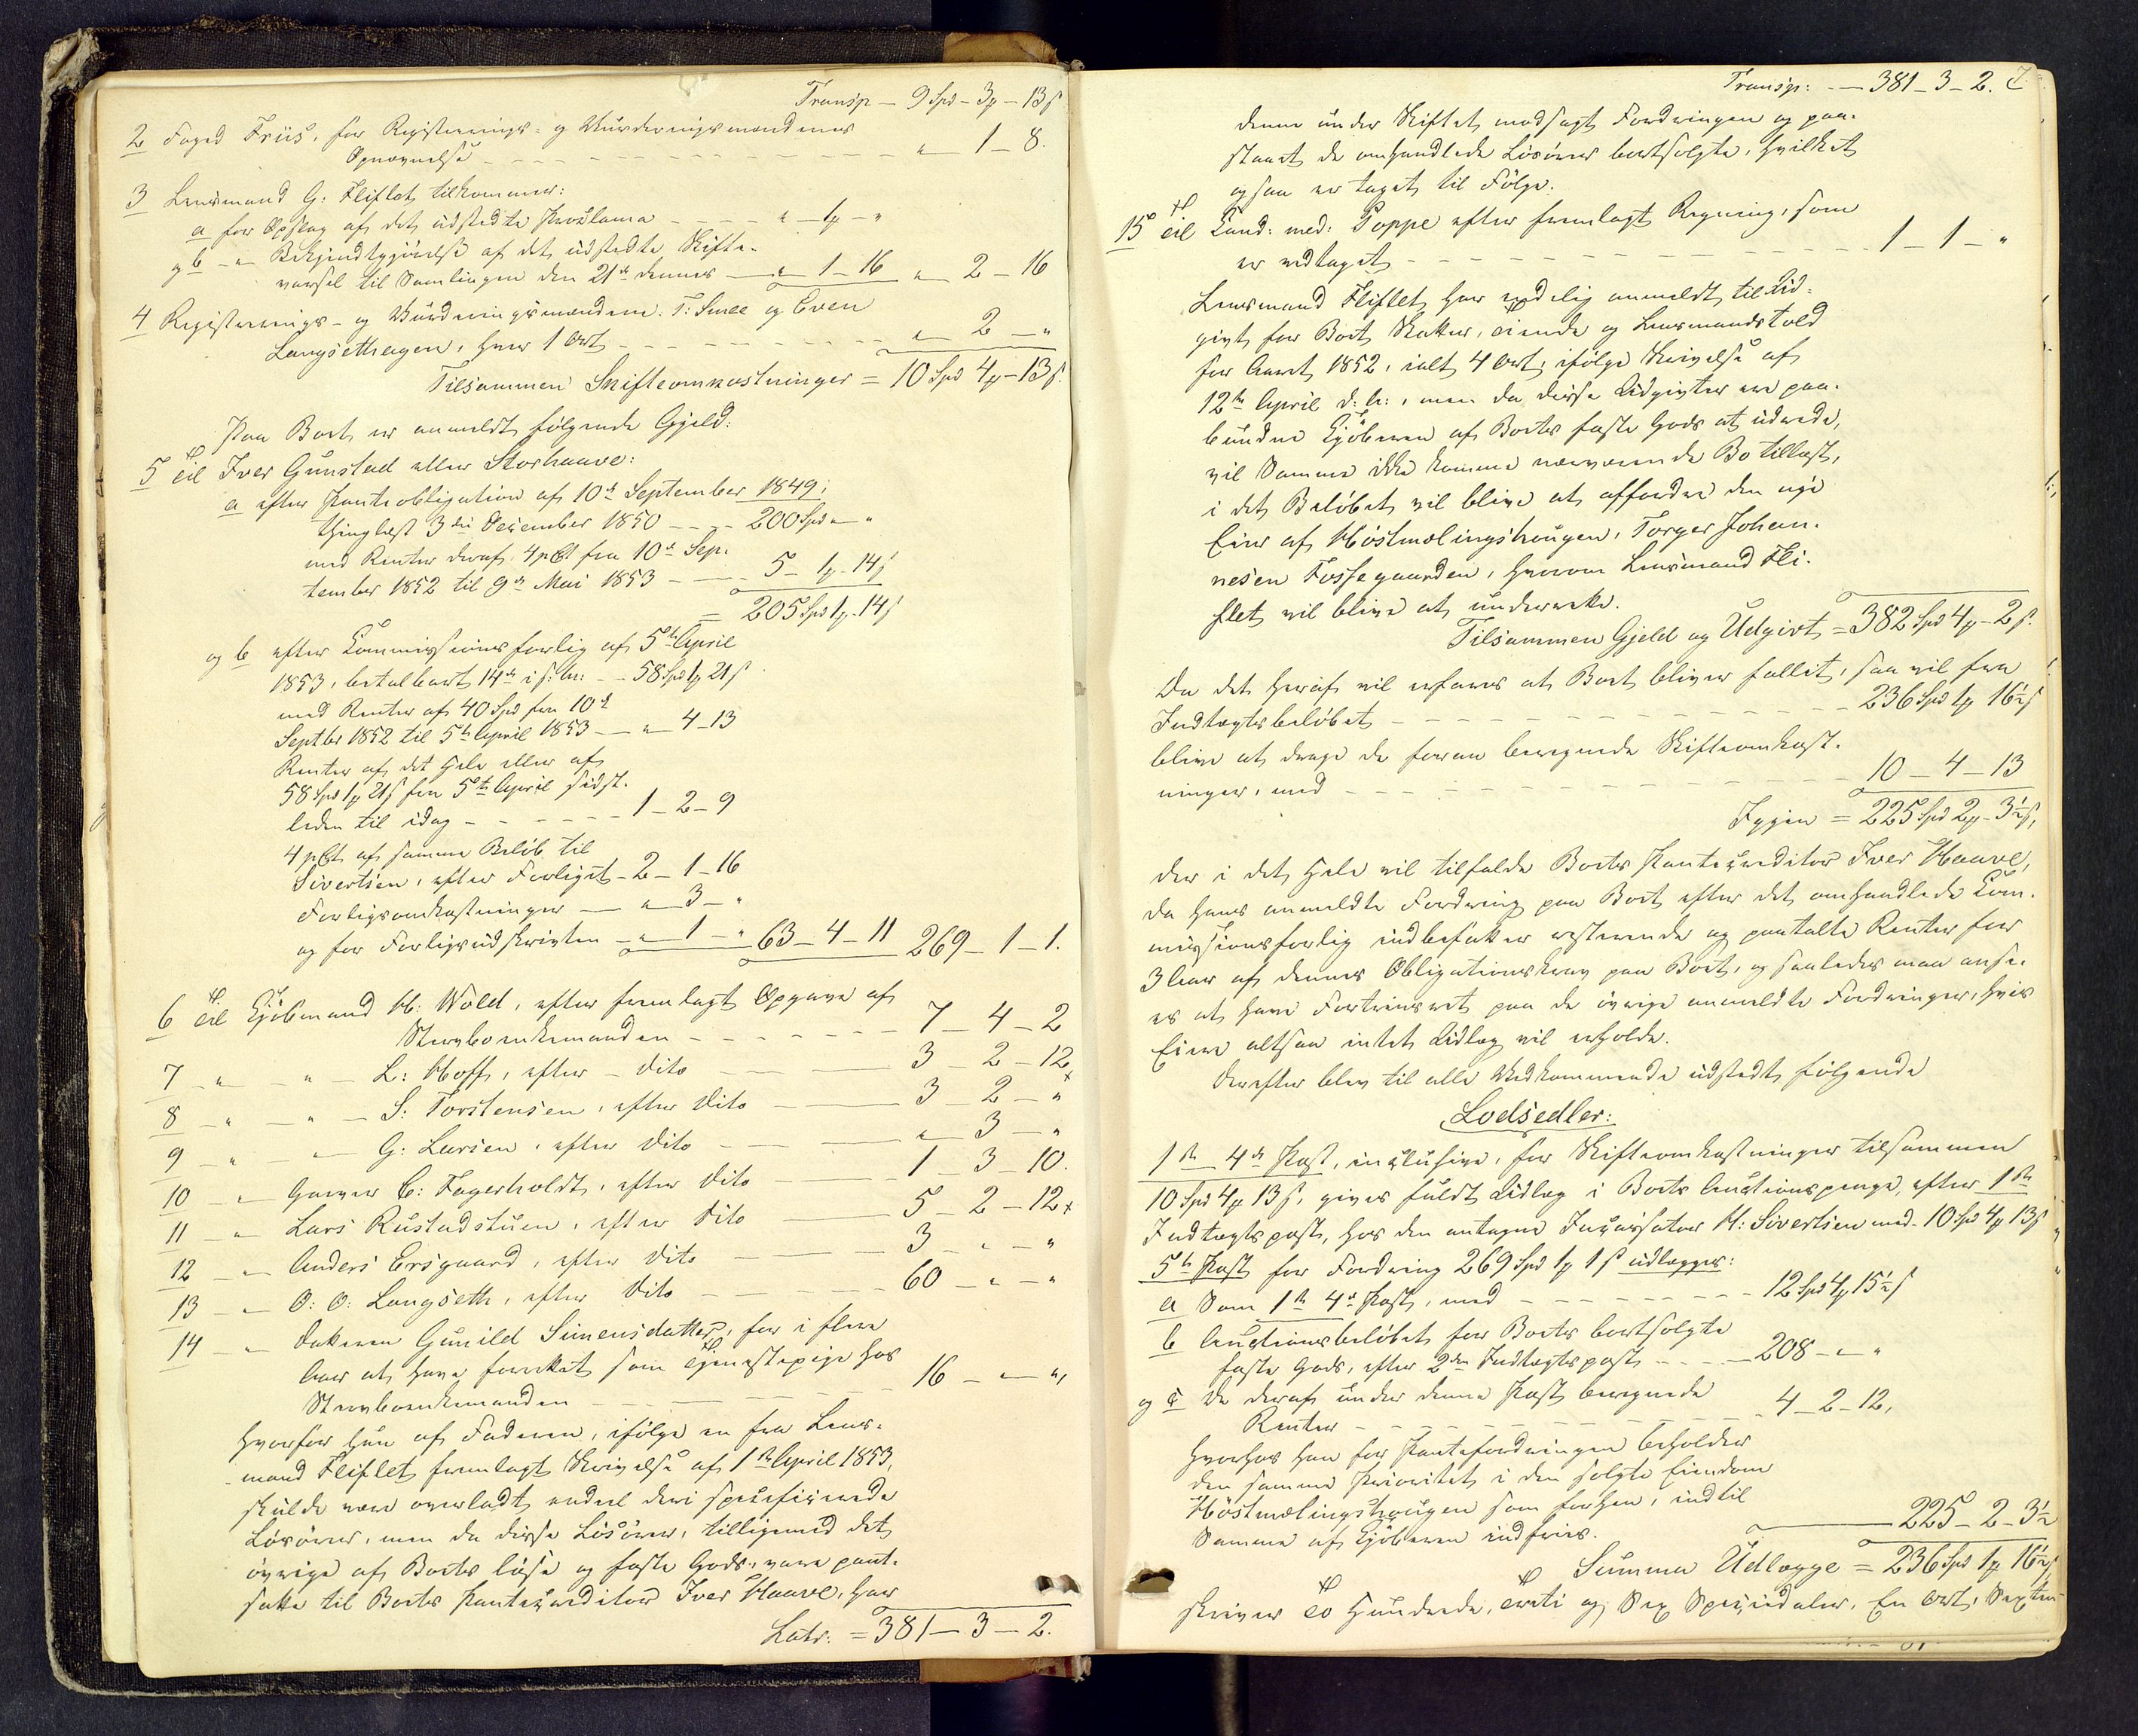 Transp – 9 Spd – 3 ₰ – 13 s
2 Foged Friis, for Registrerings- og Vurderingsmændenes
Opnævnelse – „ – 1 – 8.
3 Lensmand G: Fliflet tilkommer:
a for Opslag af det udstedte Proclama – „ – 1 ₰ – „
og b – „ – Bekjendtgjørelse af det udstedte Skifte-
varsel til Samlingen den 21de dennes – „ – 1 – 16 „ – 2 – 16
4 Registrerings- og Vurderingsmændene T: Smee og Even
Langsethagen, hver 1 Ort – „ – 2 – „
Tilsammen Skifteomkostninger = 10 Spd 4 ₰ – 13 s.
Paa Boet er anmeldt følgende Gjeld:
5 Til Iver Gunstad eller Storhaave:
a efter Panteobligation af 10de September 1849,
thinglæst 3die December 1850 – 200 Spd „ – „
med Renter deraf 4 pCt fra 10de Sep-
tember 1852 til 9de Mai 1853 – 5 – 1 ₰ – 14 s
= 205 Spd 1 ₰ – 14 s
og b efter Commissionsforlig af 5te April
1853, betalbart 14de i s: M: – 58 Spd 1 ₰ 21 s
med Renter af 40 Spd fra 10de
Septbr 1852 til 5te April 1853 – „ – 4 – 13
Renter af det Hele eller af
58 Spd 1 ₰ 21 s fra 5te April sidst-
leden til idag – 1 – 2 – 9
4 pCt af samme Beløb til
Sivertsen, efter Forliget – 2 – 1 – 16
Forligsomkostninger – „ – 3 – „
og for Forligsudskriften – „ – 1 – „ 63 – 4 – 11 269 – 1 – 1.
6 Til Kjøbmand M: Wold, efter fremlagt Opgave af
Stervboenkemanden – 7 – 4 – 2
7 – „ – „ – L: Hoff, efter – dito – 3 – 2 – 12
8 – „ – „ – S: Torstensen, efter dito – 3 – 2 – „
9 – „ – „ – G: Larsen, efter dito – „ – 3 – „
10 – „ – Garver C: Fagerholdt, efter dito – 1 – 3 – 10.
11 – „ – Lars Rustadstuen, efter dito – 5 – 2 – 12
12 – „ – Anders Ersgaard, efter dito – 3 – „ – „
13 – „ – O: O: Langseth, efter dito – 60 – „ – „
14 – „ – Datteren Gunild Simensdatter, for i flere
Aar at have forrettet som Tjenestepige hos
Stervboenkemanden – 16 – „ – „,
hvorfor hun af Faderen, ifølge en fra Lens-
mand Fliflet fremlagt Skrivelse af 1ste April 1853,
skulde være overladt endeel deri specificerede
Løsøren, men da disse Løsøren, tilligemed det
øvrige af Boets løse og faste Gods, vare pant-
satte til Boets Panteкreditor Iver Haave, har
Latr. = 381 – 3 – 2.
Transp: – 381 – 3 – 2. 7.
denne under Skiftet modsagt Fordringen og paa-
staaet de omhandlede Løsøren bortsolgte, hvilket
ogsaa er taget til Følge.
15 Til Cand: med: Poppe efter fremlagt Regning, som
er vedtaget – 1 – 1 – „
Lensmand Fliflet har endelig anmeldt til Ud-
givt for Boet Skatter, Tiende og Lensmandstold
for Aaret 1852, ialt 4 Ort, ifølge Skrivelse af
12te April d: A:, men da disse Udgivter ere paa-
bundne Kjøberen af Boets faste Gods at udrede,
vil Samme ikke komme nærværende Bo tillast,
i det Beløbet vil blive at affordre den nye
Eier af Høstmælingshougen, Torger Johan-
nesen Fossegaarden, hvorom Lensmand Fli-
flet vil blive at underrette.
Tilsammen Gjeld og Udgivt = 382 Spd 4 ₰ – 2 s.
Da det heraf vil erfares at Boet bliver fallit, saa vil fra
Indtægtsbeløbet – 236 Spd 1 ₰ 16½ s
blive at drage de foran beregnede Skifteomkost-
ninger, med – 10 – 4 – 13
Igjen = 225 Spd 2 ₰ – 3½ s,
der i det Hele vil tilfalde Boets Pantecreditor Iver Haave,
da hans anmeldte Fordring paa Boet efter det omhandlede Com-
missionsforlig indbefatter resterende og paatalte Renter for
3 Aar af dennes Obligationskrav paa Boet, og saaledes maa anse-
es at have Fortrinsret paa de øvrige anmeldte Fordringer, hvis
Eiere altsaa intet Udlæg vil erholde.
Derefter blev til alle Vedkommende udstedt følgende
Lodsedler:
1ste – 4de Post, inclusive, for Skifteomkostninger tilsammen
10 Spd 4 ₰ 13 s, gives fuldt Udlæg i Boets Auctionspenge, efter 1ste
Indtægtspost, hos den antagne Incassator M: Sivertsen med – 10 Spd 4 ₰ 13 s
5te Post for Fordring 269 Spd 1 ₰ 1 s udlægges:
a Som 1ste 4de Post, med – 12 Spd 4 ₰ 15½ s
b Auctionsbeløbet for Boets bortsolgte
faste Gods, efter 2den Indtægtspost – 208 – „ – „
og c De deraf under denne Post beregnede
Renter – 4 – 2 – 12,
hvorhos han for Pantefordringen beholder
den samme Prioritet i den solgte Eiendom
Høstmælingshougen som forhen, indtil
Samme af Kjøberen indfries. – 225 – 2 – 3½
Summa Udlægge = 236 Spd 1 ₰ 16½ s,
skriver To Hundrede, Treti og Sex Speciedaler, En Ort, Sexten